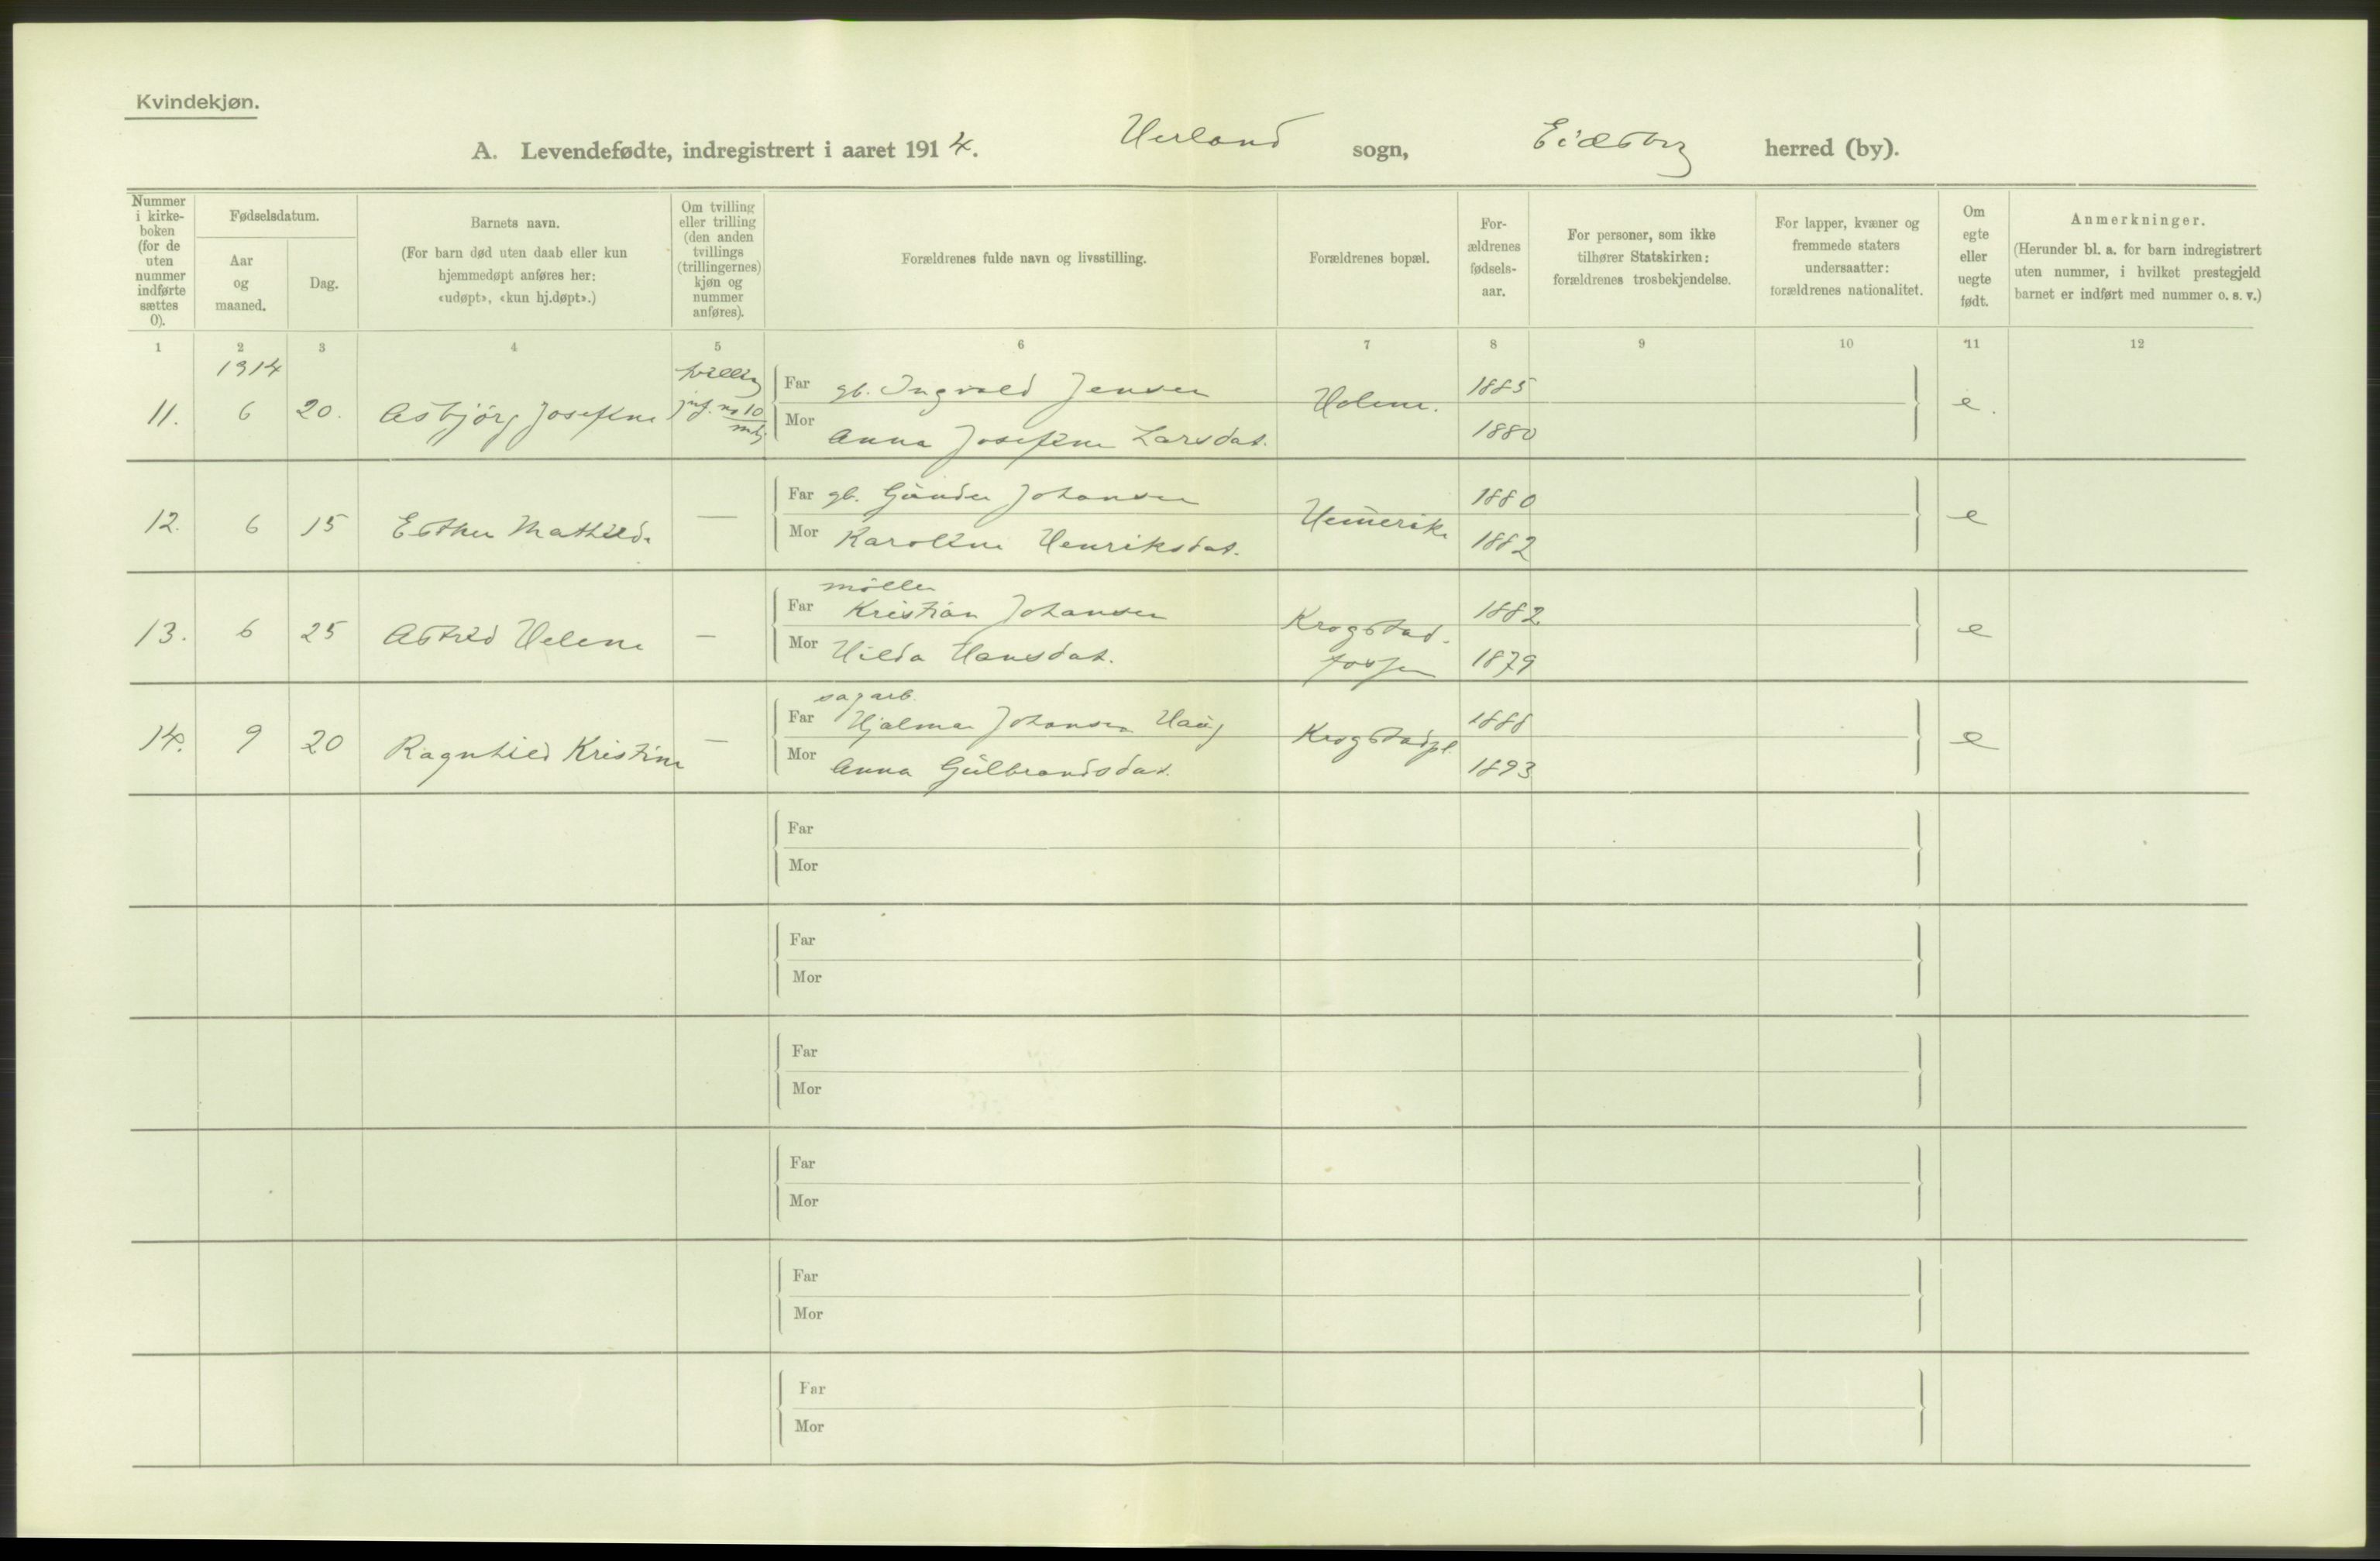 Kvindekjøn.
A. Levendefødte, indregistrert i aaret 1914. Herland sogn, Eidsberg herred (by).
Nummer i kirke- boken (for de uten nummer indførte sættes 0).
Fødselsdatum.
Aar og maaned.
Dag.
Barnets navn.
(For barn død uten daab eller kun hjemmedøpt anføres her: «udøpt», «kun hj.døpt».)
Om tvilling eller trilling (den anden tvillings (trillingernes) kjøn og nummer anføres).
Forældrenes fulde navn og livsstilling.
Forældrenes bopæl.
For- ældrenes fødsels- aar.
For personer, som ikke tilhører Statskirken: forældrenes trosbekjendelse.
For lapper, kvæner og fremmede staters undersaatter: forældrenes nationalitet.
Om egte eller uegte født.
Anmerkninger.
(Herunder bl. a. for barn indregistrert uten nummer, i hvilket prestegjeld barnet er indført med nummer o. s. v.)
1 2 3 4 5 6 7 8 9 10 11 12
1914
11. 6 20. Asbjørg Josefine tvilling jnf. no 10 Far gb. Ingvald Jensen Holene. 1885 e.
Mor Anna Josefine Larsdat. 1880
12. 6 15 Esther Mathilde — Far gb. Gunder Johansen 1880 e
Mor Karoline Henriksdat. 1882
møller
13. 6 25 Astrid Helene — Far Kristian Johansen Krogstad- 1882 e
Mor Hilda Hansdat. fossen 1879
sagarb.
14. 9 20 Ragnhild Kristine — Far Hjalmar Johansen Haug Krogstadpl. 1888 e
Mor Anna Gulbrandsdat. 1893
Far
Mor
Far
Mor
Far
Mor
Far
Mor
Far
Mor
Far
Mor